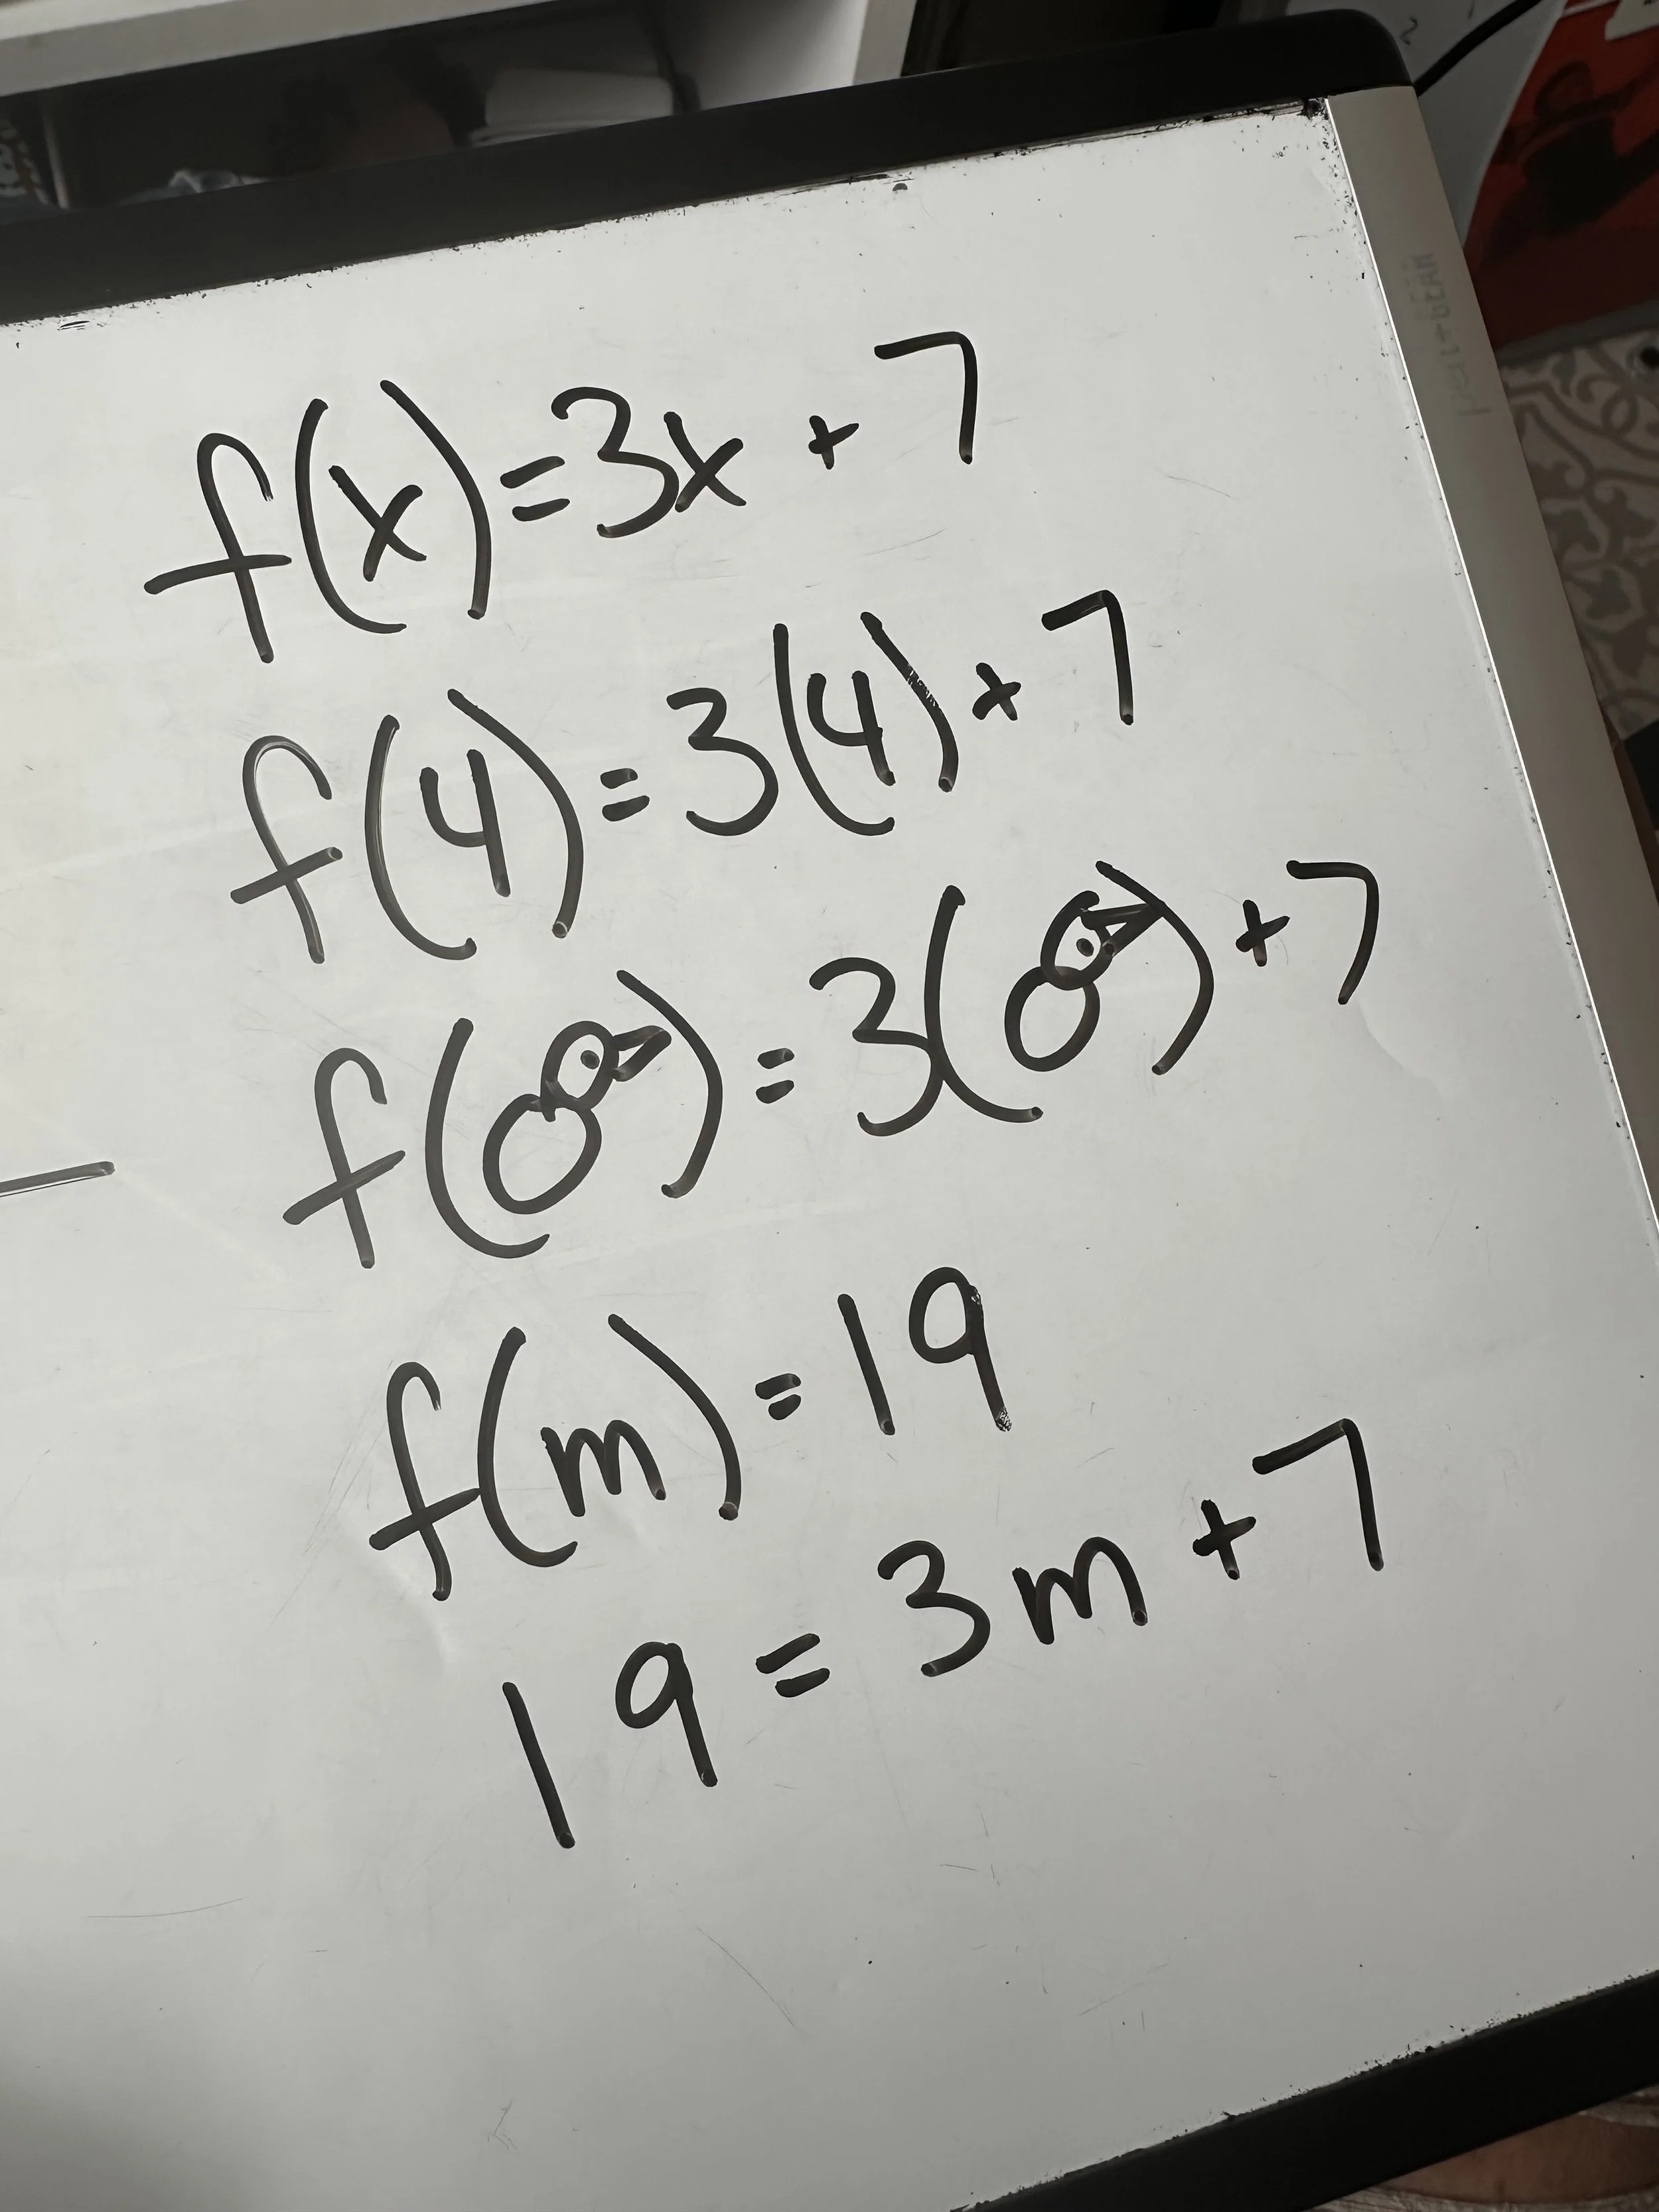 f(x)=3x+7
f(4)=3(4)+7
f( )=3( )+7
f(m)=19
19=3m+7